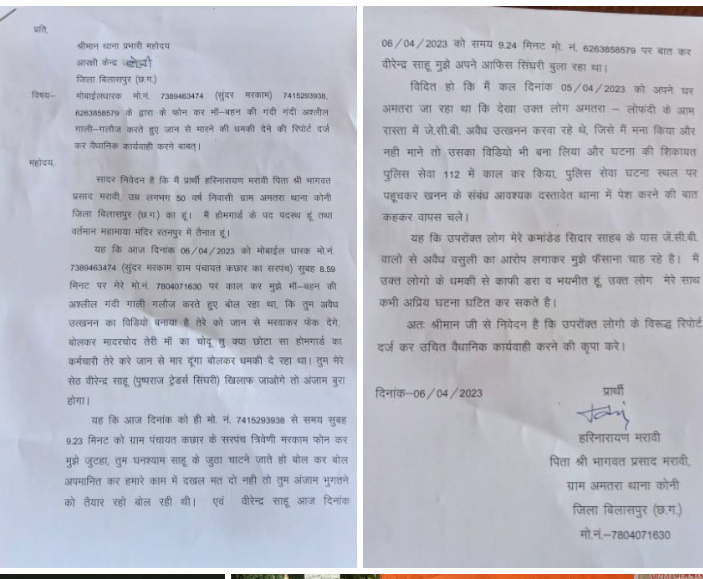 प्रति,
श्रीमान थाना प्रभारी महोदय
आरक्षी केन्द्र
जिला बिलासपुर (छ.ग.)
विषय– मोबाईलधारक मो.नं. 7389463474 (सुंदर मरकाम) 7415293938,
6263858579 के द्वारा के फोन कर माँ–बहन की गंदी गंदी अश्लील
गाली–गलौज करते हुए जान से मारने की धमकी देने की रिपोर्ट दर्ज
कर वैधानिक कार्यवाही करने बाबत्।
महोदय,
सादर निवेदन है कि मैं प्रार्थी हरिनारायण मरावी पिता श्री भागवत
प्रसाद मरावी, उम्र लगभग 50 वर्ष निवासी ग्राम अमतरा थाना कोनी
जिला बिलासपुर (छ.ग.) का हूं। मैं होमगार्ड के पद पदस्थ हूं तथा
वर्तमान महामाया मंदिर रतनपुर में तैनात हूं।
यह कि आज दिनांक 06/04/2023 को मोबाईल धारक मो.नं.
7389463474 (सुंदर मरकाम ग्राम पंचायत कछार का सरपंच) सुबह 8.59
मिनट पर मेरे मो.नं. 7804071630 पर काल कर मुझे माँ–बहन की
अश्लील गंदी गाली गलौज करते हुए बोल रहा था, कि तुम अवैध
उत्खनन का विडियो बनाया है तेरे को जान से मरवाकर फेक देंगे,
बोलकर मादरचोद तेरी माँ का चोदू तु क्या छोटा सा होमगार्ड का
कर्मचारी तेरे करे जान से मार दूंगा बोलकर धमकी दे रहा था। तुम मेरे
सेठ वीरेन्द्र साहू (पुष्पराज ट्रेडर्स सिंघरी) खिलाफ जाओगे तो अंजाम बुरा
होगा।
यह कि आज दिनांक को ही मो. नं. 7415293938 से समय सुबह
9.23 मिनट को ग्राम पंचायत कछार के सरपंच त्रिवेणी मरकाम फोन कर
मुझे जुटहा, तुम घनश्याम साहू के जुठा चाटने जाते हो बोल कर बोल
अपमानित कर हमारे काम में दखल मत दो नही तो तुम अंजाम भुगतने
को तैयार रहो बोल रही थी। एवं वीरेन्द्र साहू आज दिनांक
06/04/2023 को समय 9.24 मिनट मो. नं. 6263858579 पर बात कर
वीरेन्द्र साहू मुझे अपने आफिस सिंघरी बुला रहा था।
विदित हो कि मैं कल दिनांक 05/04/2023 को अपने घर
अमतरा जा रहा था कि देखा उक्त लोग अमतरा – लोफंदी के आम
रास्ता में जे.सी.बी. अवैध उत्खनन करवा रहे थे, जिसे में मना किया और
नही माने तो उसका विडियो भी बना लिया और घटना की शिकायत
पुलिस सेवा 112 में काल कर किया, पुलिस सेवा घटना स्थल पर
पहूचकर खनन के संबंध आवश्यक दस्तावेत थाना में पेश करने की बात
कहकर वापस चले।
यह कि उपरोक्त लोग मेरे कमांडेड सिदार साहब के पास जे.सी.बी.
वालो से अवैध वसुली का आरोप लगाकर मुझे फँसाना चाह रहे है। मैं
उक्त लोगो के धमकी से काफी डरा व भयभीत हूं, उक्त लोग मेरे साथ
कभी अप्रिय घटना घटित कर सकते है।
अतः श्रीमान जी से निवेदन है कि उपरोक्त लोगो के विरूद्ध रिपोर्ट
दर्ज कर उचित वैधानिक कार्यवाही करने की कृपा करे।
दिनांक–06/04/2023 प्रार्थी
हरिनारायण मरावी
पिता श्री भागवत प्रसाद मरावी,
ग्राम अमतरा थाना कोनी
जिला बिलासपुर (छ.ग.)
मो.नं.–7804071630